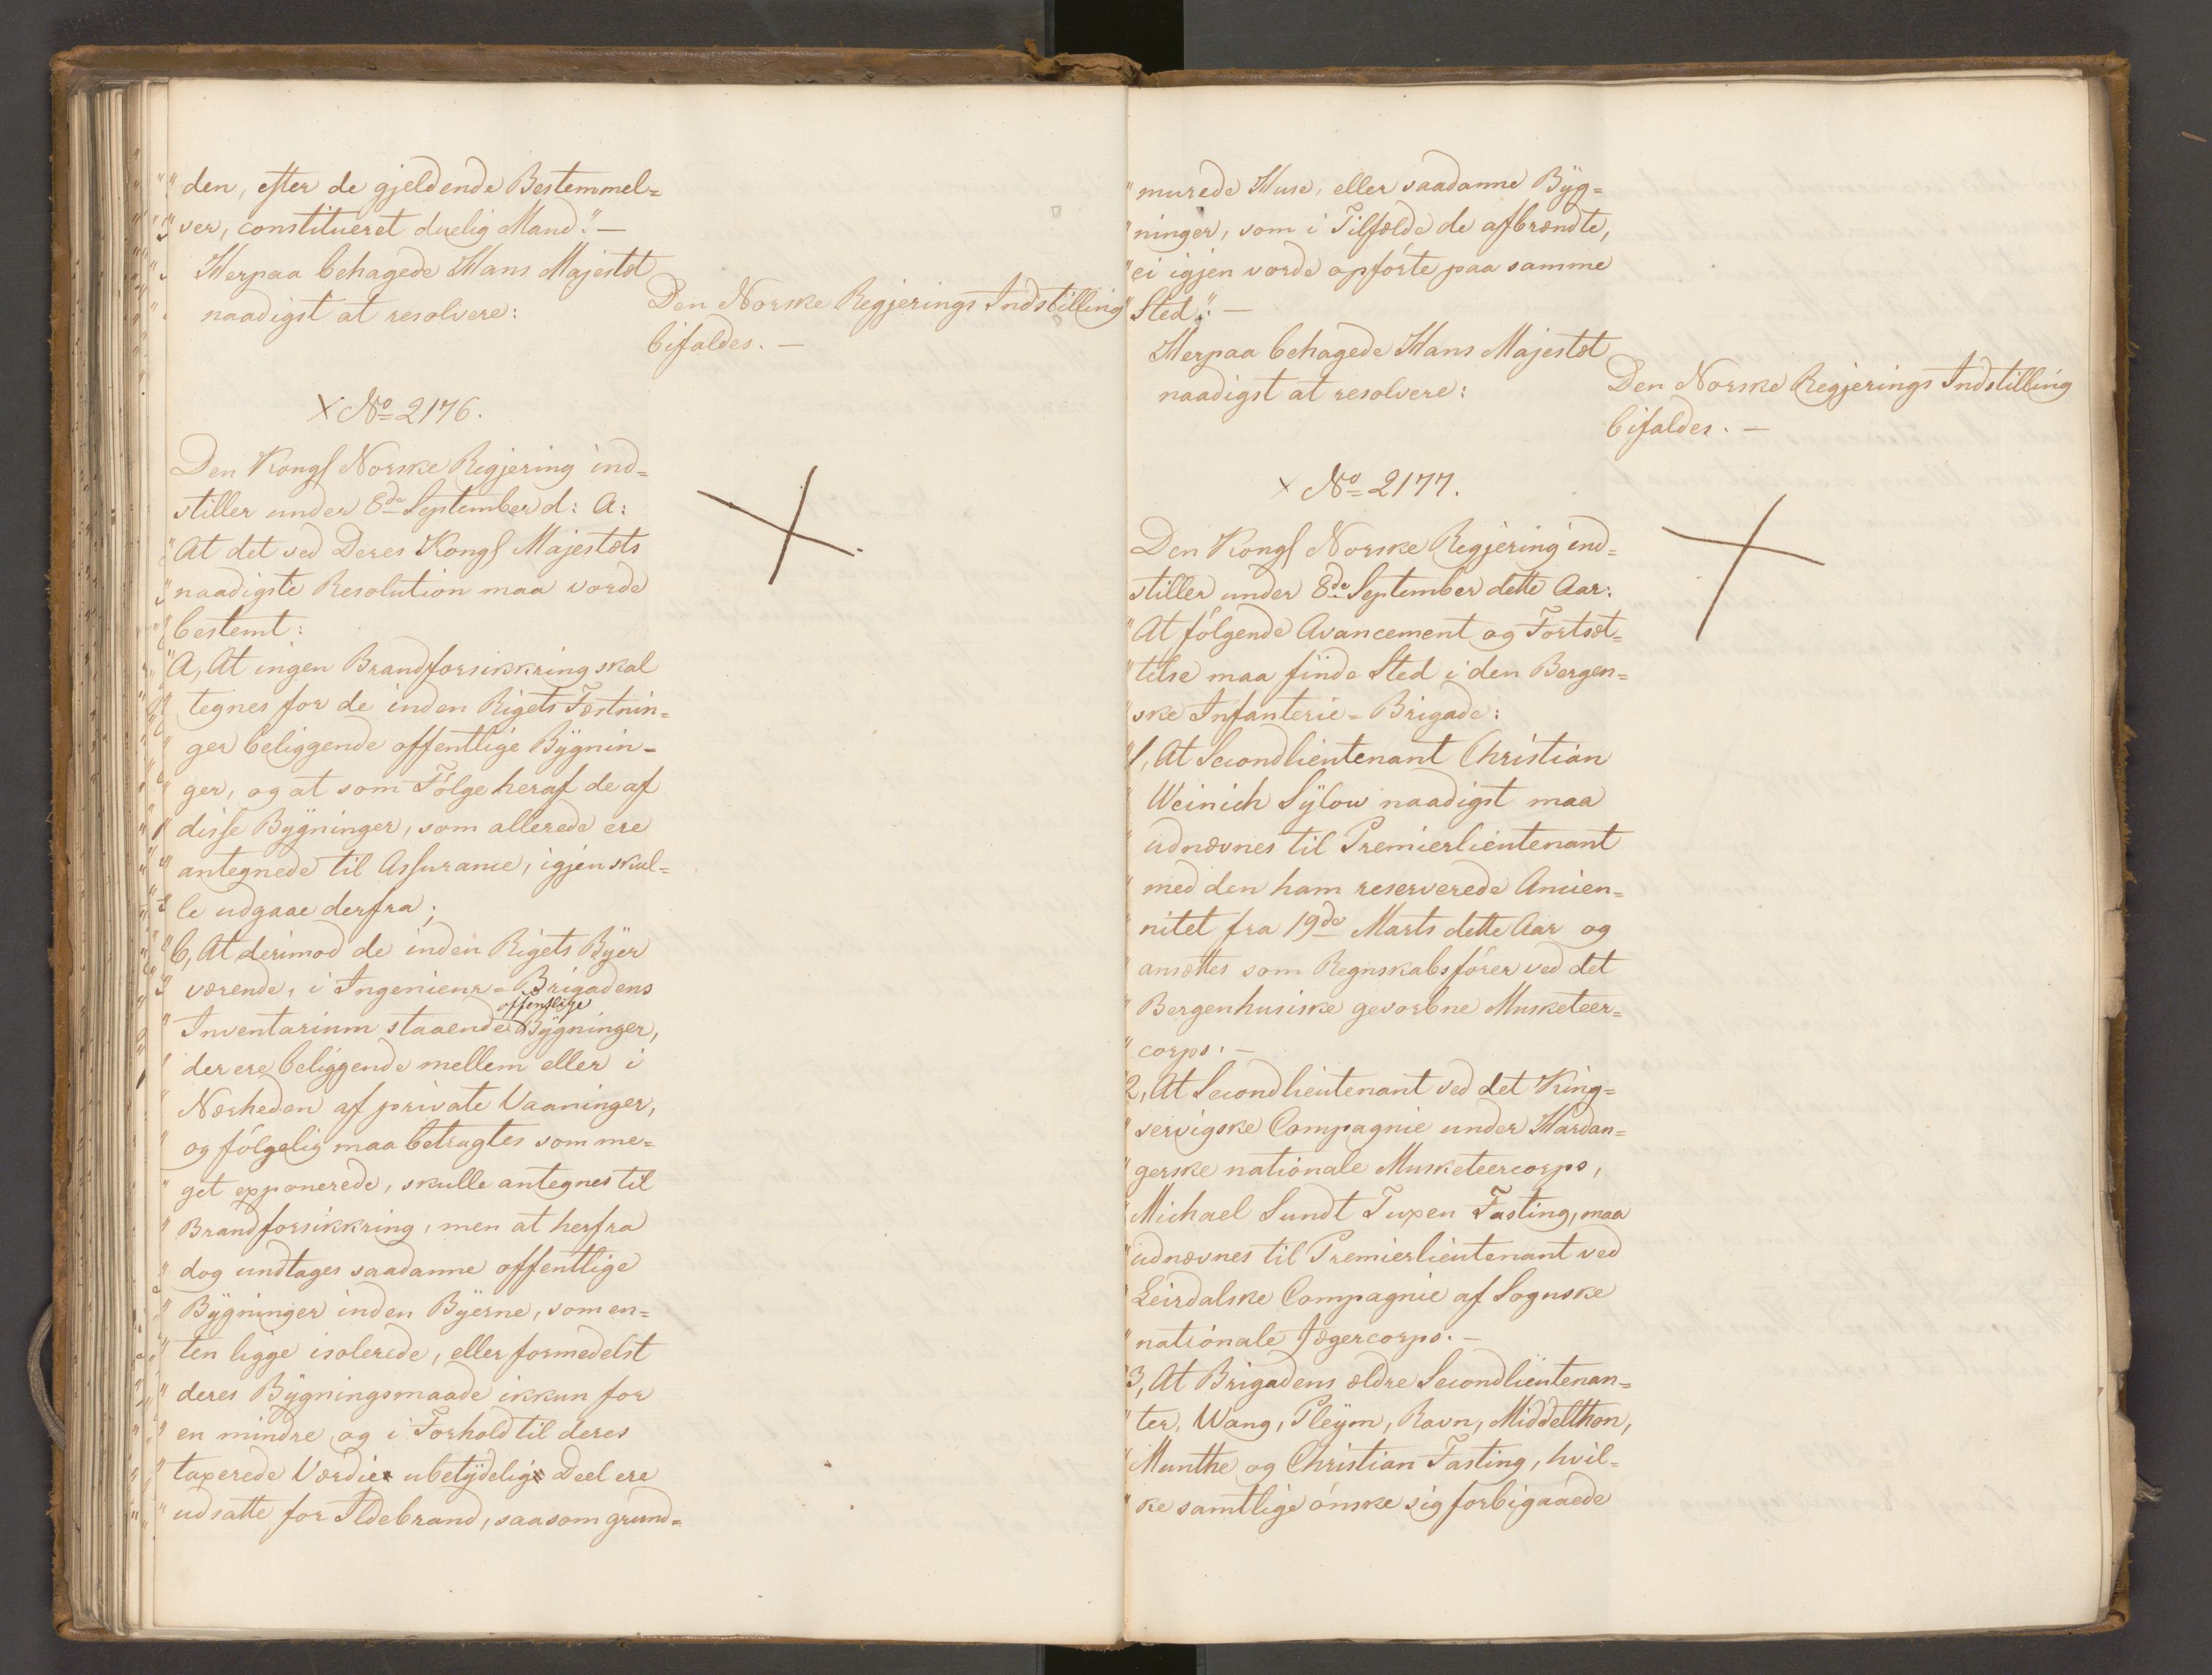 "den, efter de gjeldende Bestemmel=
ser, constitueret duelig Mand." —
Herpaa behagede Hans Majestæt
naadigst at resolvere:
Den Norske Regjerings Indstilling
bifaldes. —
X No 2176.
Den Kongl Norske Regjering ind=
stiller under 8de September d: A:
"At det ved Deres Kongl Majestæts
"naadigste Resolution maa vorde
"bestemt:
"A, At ingen Brandforsikkring skal
" tegnes for de inden Rigets Fæstnin=
" ger beliggende offentlige Bygnin=
" ger, og at som Følge heraf de af
" disse Bygninger, som allerede ere
" antegnede til Assurance, igjen skul=
" le udgaae derfra;
"b, At derimod de inden Rigets Byer
" værende, i Ingenieur=Brigadens
" Inventarium staaende offentlige Bygninger,
" der ere beliggende mellem eller i
" Nærheden af private Vaaninger,
" og følgelig maa betragtes som me=
" get exponerede, skulle antegnes til
" Brandforsikkring, men at herfra
" dog undtages saadanne offentlige
" Bygninger inden Byerne, som en=
" ten ligge isolerede, eller formedelst
" deres Bygningsmaade ikkun for
" en mindre og i Forhold til deres
" taxerede Værdie ubetydelig Deel ere
" udsatte for Ildebrand, saasom grund=
"murede Huse, eller saadanne Byg=
"ninger, som i Tilfælde de afbrændte,
"ei igjen vorde opførte paa samme
"Sted". —
Herpaa behagede Hans Majestæt
naadigst at resolvere:
Den Norske Regjerings Indstilling
bifaldes. —
X No 2177.
Den Kongl Norske Regjering ind=
stiller under 8de September dette Aar:
"At følgende Avancement og Fortsæt=
"telse maa finde Sted i den Bergen=
"ske Infanterie=Brigade:
"1, At Secondlieutenant Christian
" Weinich Sylow naadigst maa
" udnævnes til Premierlieutenant
" med den ham reserverede Ancien=
" nitet fra 19de Marts dette Aar og
" ansættes som Regnskabsfører ved det
" Bergenhusiske gevorbne Musketeer=
" corps. —
"2, At Secondlieutenant ved det King=
" servigske Compagnie under Hardan=
" gerske nationale Musketeercorps,
"Michael Sundt Tuxen Fasting, maa
"udnævnes til Premierlieutenant ved
"Leirdalske Compagnie af Sognske
"nationale Jægercorps. —
"3, At Brigadens ældre Secondlieutenan=
"ter, Wang, Pleym, Ravn, Middelthon,
"Munthe og Christian Fasting, hvil=
"ke samtlige ønske sig forbigaaede